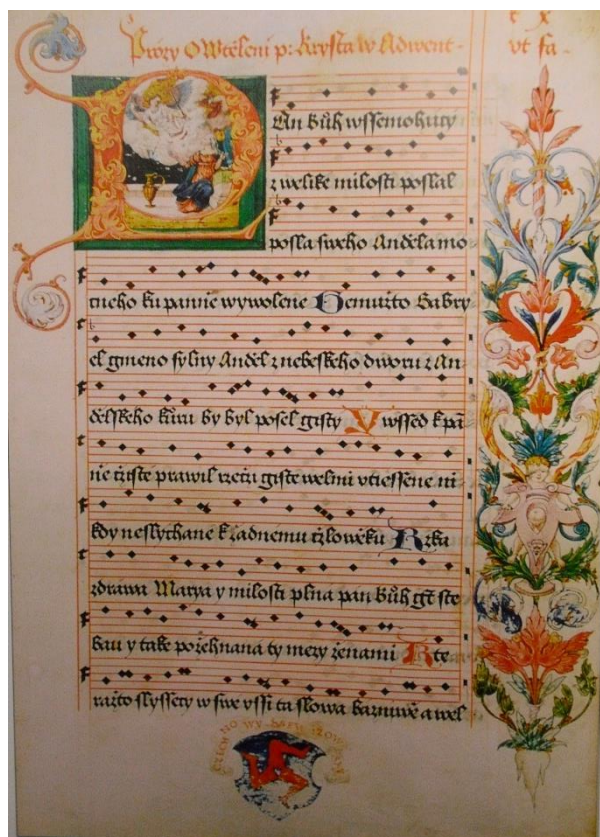 Prózy O Wtělení p: Krysta w Adwent.
vt fa.
PAn Bůh wssemohutzy
z welike milosti poslal
posla sweho Anděla mo
tneho ku pannie wywolene Gemužto Gabry
el gmeno sylny Anděl z nebeskeho dworu z An
dělskeho kůru by byl posel gisty Vwssed k pā
nie tziste prawil rzetz giste welmi vtiessene ni
kdy neslychane k zadnemu tzlowěku Rzka
zdrawa Marya y milosti plna pan Bůh gt́ s te
bau y take požehnana ty mezy ženami Kte
ražto slyssety w swe vssi ta slowa barzuwě a wel